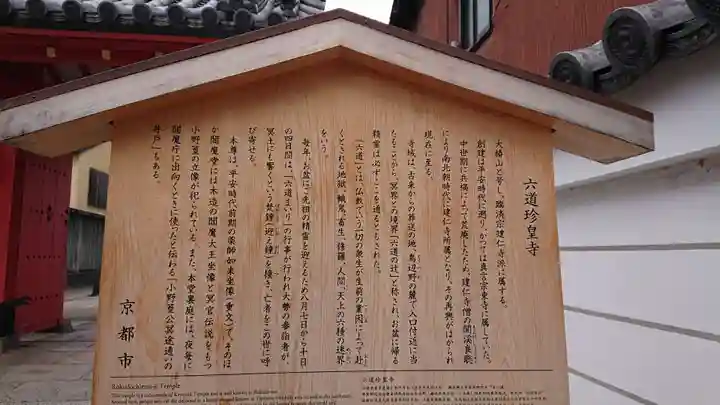 六道珍皇寺
大椿山と号し、臨済宗建仁寺派に属する。
創建は平安時代に遡り、かつては真言宗東寺に属していた。
中世期に兵禍によって荒廃したため、建仁寺僧の聞渓良聡
により南北朝時代に建仁寺所属となり、その再興がはかられ
現在に至る。
寺域は、古来からの葬送の地、鳥辺野の麓で入口付近に当
たることから、「冥界との境界「六道の辻」と称され、お盆に帰る
精霊は必ずここを通るともされた。
「六道」とは、仏教でいう一切の衆生が生前の業因によって赴
くとされる地獄、餓鬼、畜生、修羅、人間、天上の六種の迷界
をいう。
毎年、お盆にご先祖の精霊を迎えるため八月七日から十日
の四日間は、「六道まいり」の行事が行われ大勢の参詣者が、
冥土にも響くという梵鐘「迎え鐘」を撞き、亡者をこの世に呼
び寄せる。
本尊は、平安時代前期の薬師如来坐像(重文)で、そのほ
か閻魔堂には木造の閻魔大王坐像と冥官伝説をもつ
小野篁の立像が祀られている。また、本堂裏庭には、夜毎に
閻魔庁に出向くときに使ったと伝わる「小野篁公冥途通いの
井戸」もある。
京都市
Rokudochinno-ji Temple
六道珍皇寺